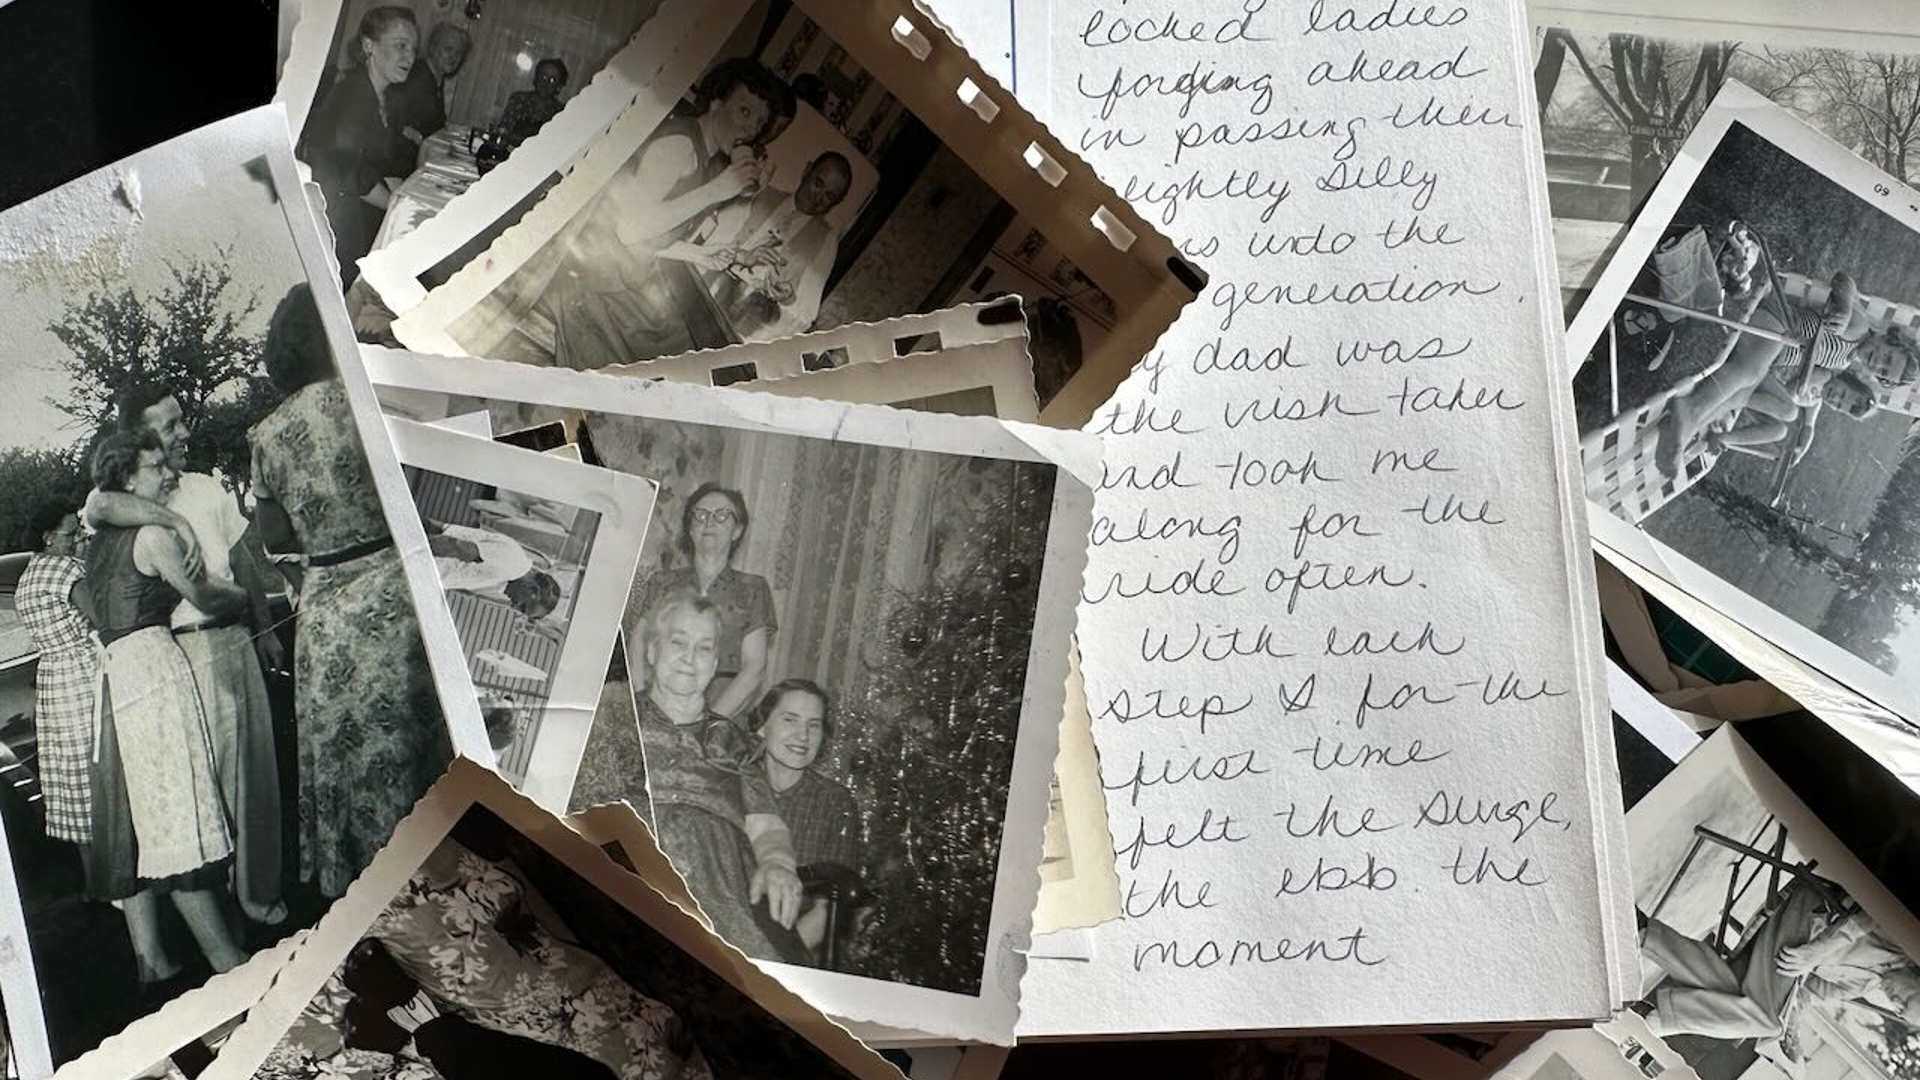 locked ladies
forging ahead
in passing their
slightly silly
unto the
generation.
dad was
the risk taker
and took me
along for the
ride often.
With each
step I for the
first time
felt the surge,
the ebb. the
moment
60